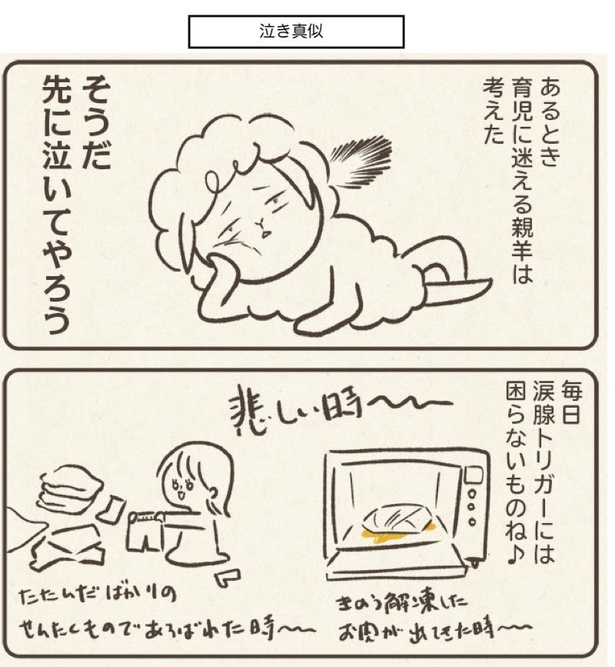 泣き真似
あるとき
育児に迷える親羊は
考えた
そうだ
先に泣いてやろう
毎日
涙腺トリガーには
困らないものね♪
悲しい時〜〜
きのう解凍した
お肉が出てきた時〜〜
たたんだばかりの
せんたくものであそばれた時〜〜